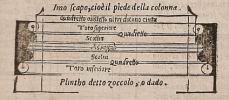 Imo scapo, cioè il piede della colonna.
Quadretto ouero lista altri dicono cinta
Toro superiore
Quadretto
Scotia
Scotia
Quadretto
Toro inferiore
Plintho detto zoccolo, o dado.